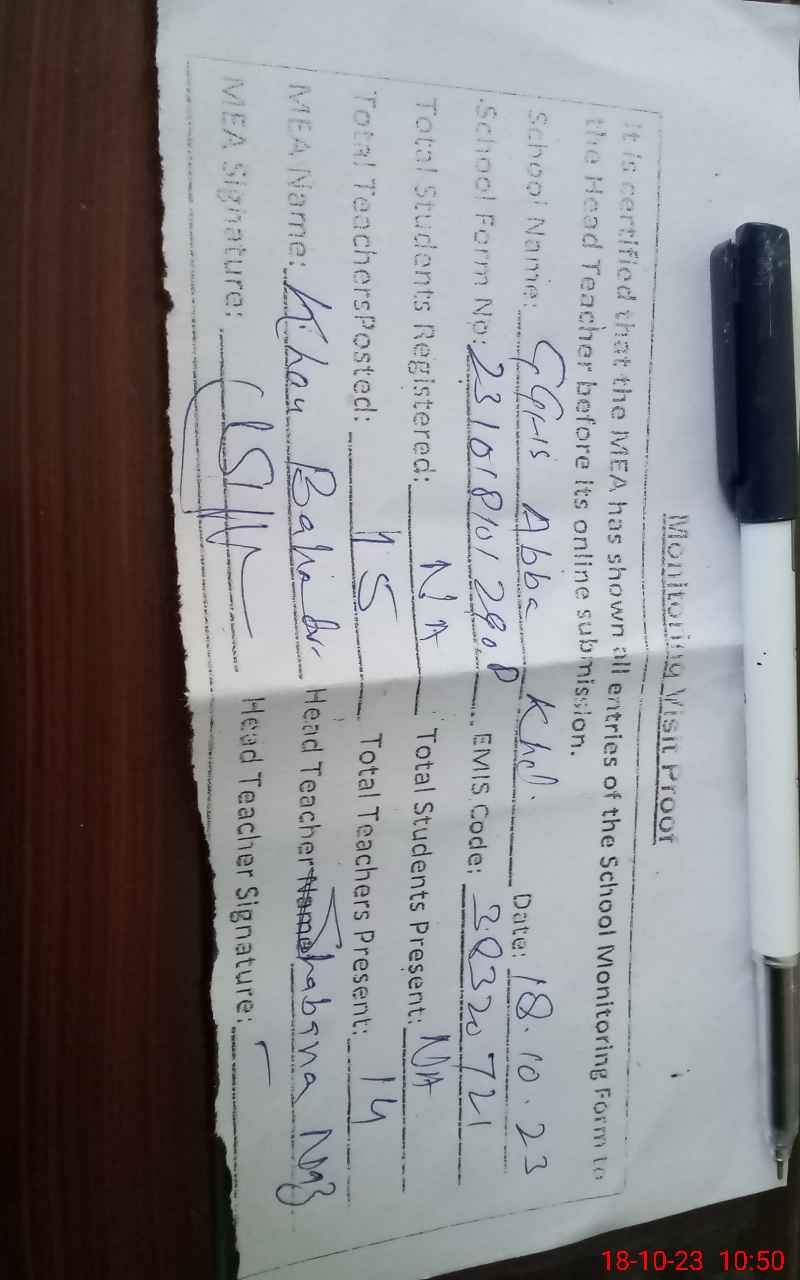 Monitoring Visit Proof
It is certified that the MEA has shown all entries of the School Monitoring Form to
the Head Teacher before its online submission.
School Name: GGHS Abba Khel. Date: 18.10.23
School Form No: 2310181012908 EMIS Code: 38320721
Total Students Registered: NA Total Students Present: NA
Total Teachers Posted: 15 Total Teachers Present: 14
MEA Name: Khan Bahadur Head Teacher Name Shabana Naz
MEA Signature: Head Teacher Signature:
18-10-23 10:50